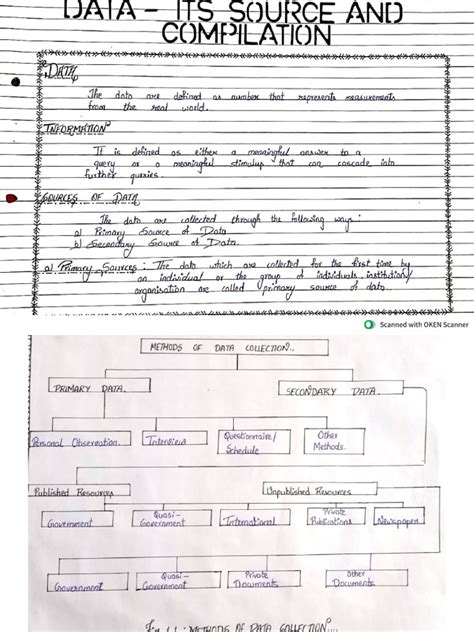 DATA - ITS SOURCE AND
COMPILATION
DATA
The data are defined as number that represents measurements
from the real world.
INFORMATION
It is defined as either a meaningful answer to a
query or a meaningful stimulus that can cascade into
further queries.
SOURCES OF DATA
The data are collected through the following ways:
a) Primary Source of Data
b) Secondary Source of Data.
a) Primary Sources: The data which are collected for the first time by
an individual or the group of individuals, institution/
organisation are called primary source of data.
Scanned with OKEN Scanner
METHODS OF DATA COLLECTION..
PRIMARY DATA.
SECONDARY DATA.
Personal Observation.
Interview
Questionnaire/
Schedule
Other
Methods.
Published Resources
Unpublished Resources
Government
Quasi-
Government
International
Private
Publications
Newspaper
Government
Quasi-
Government
Private
Documents
Other
Documents
Fig 1.1: METHODS OF DATA COLLECTION